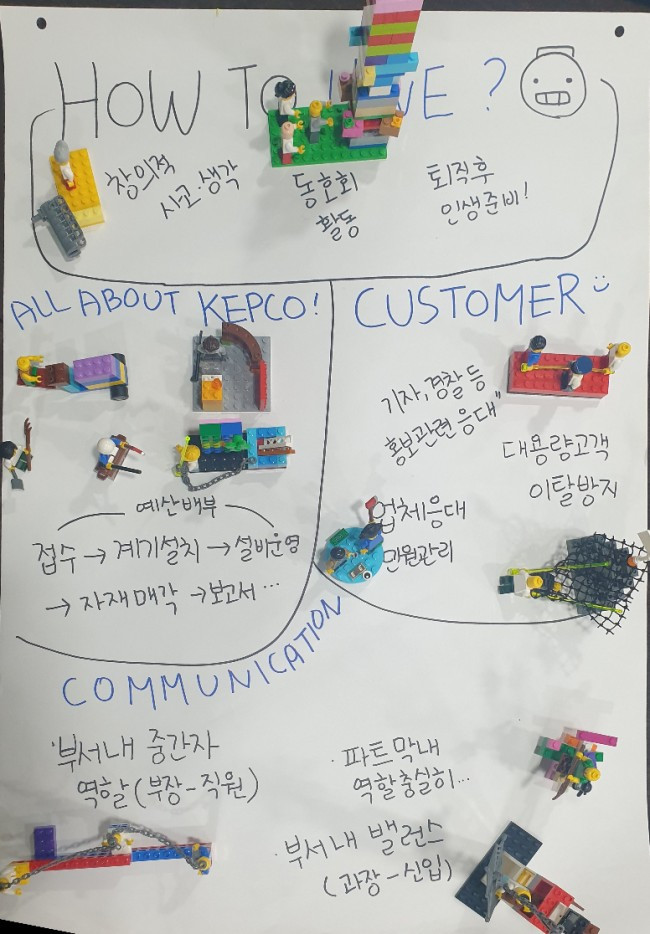 HOW TO VE ?
창의적
사고·생각
동호회
활동
퇴직후
인생준비!
ALL ABOUT KEPCO!
예산배부
접수 → 계기설치 → 설비운영
→ 자재매각 → 보고서 ...
CUSTOMER
기자, 경찰 등
홍보관련 응대"
대용량고객
이탈방지
업체응대
민원관리
COMMUNICATION
·부서내 중간자
역할 (부장-직원)
· 파트막내
역할충실히...
· 부서내 밸런스
(과장-신입)